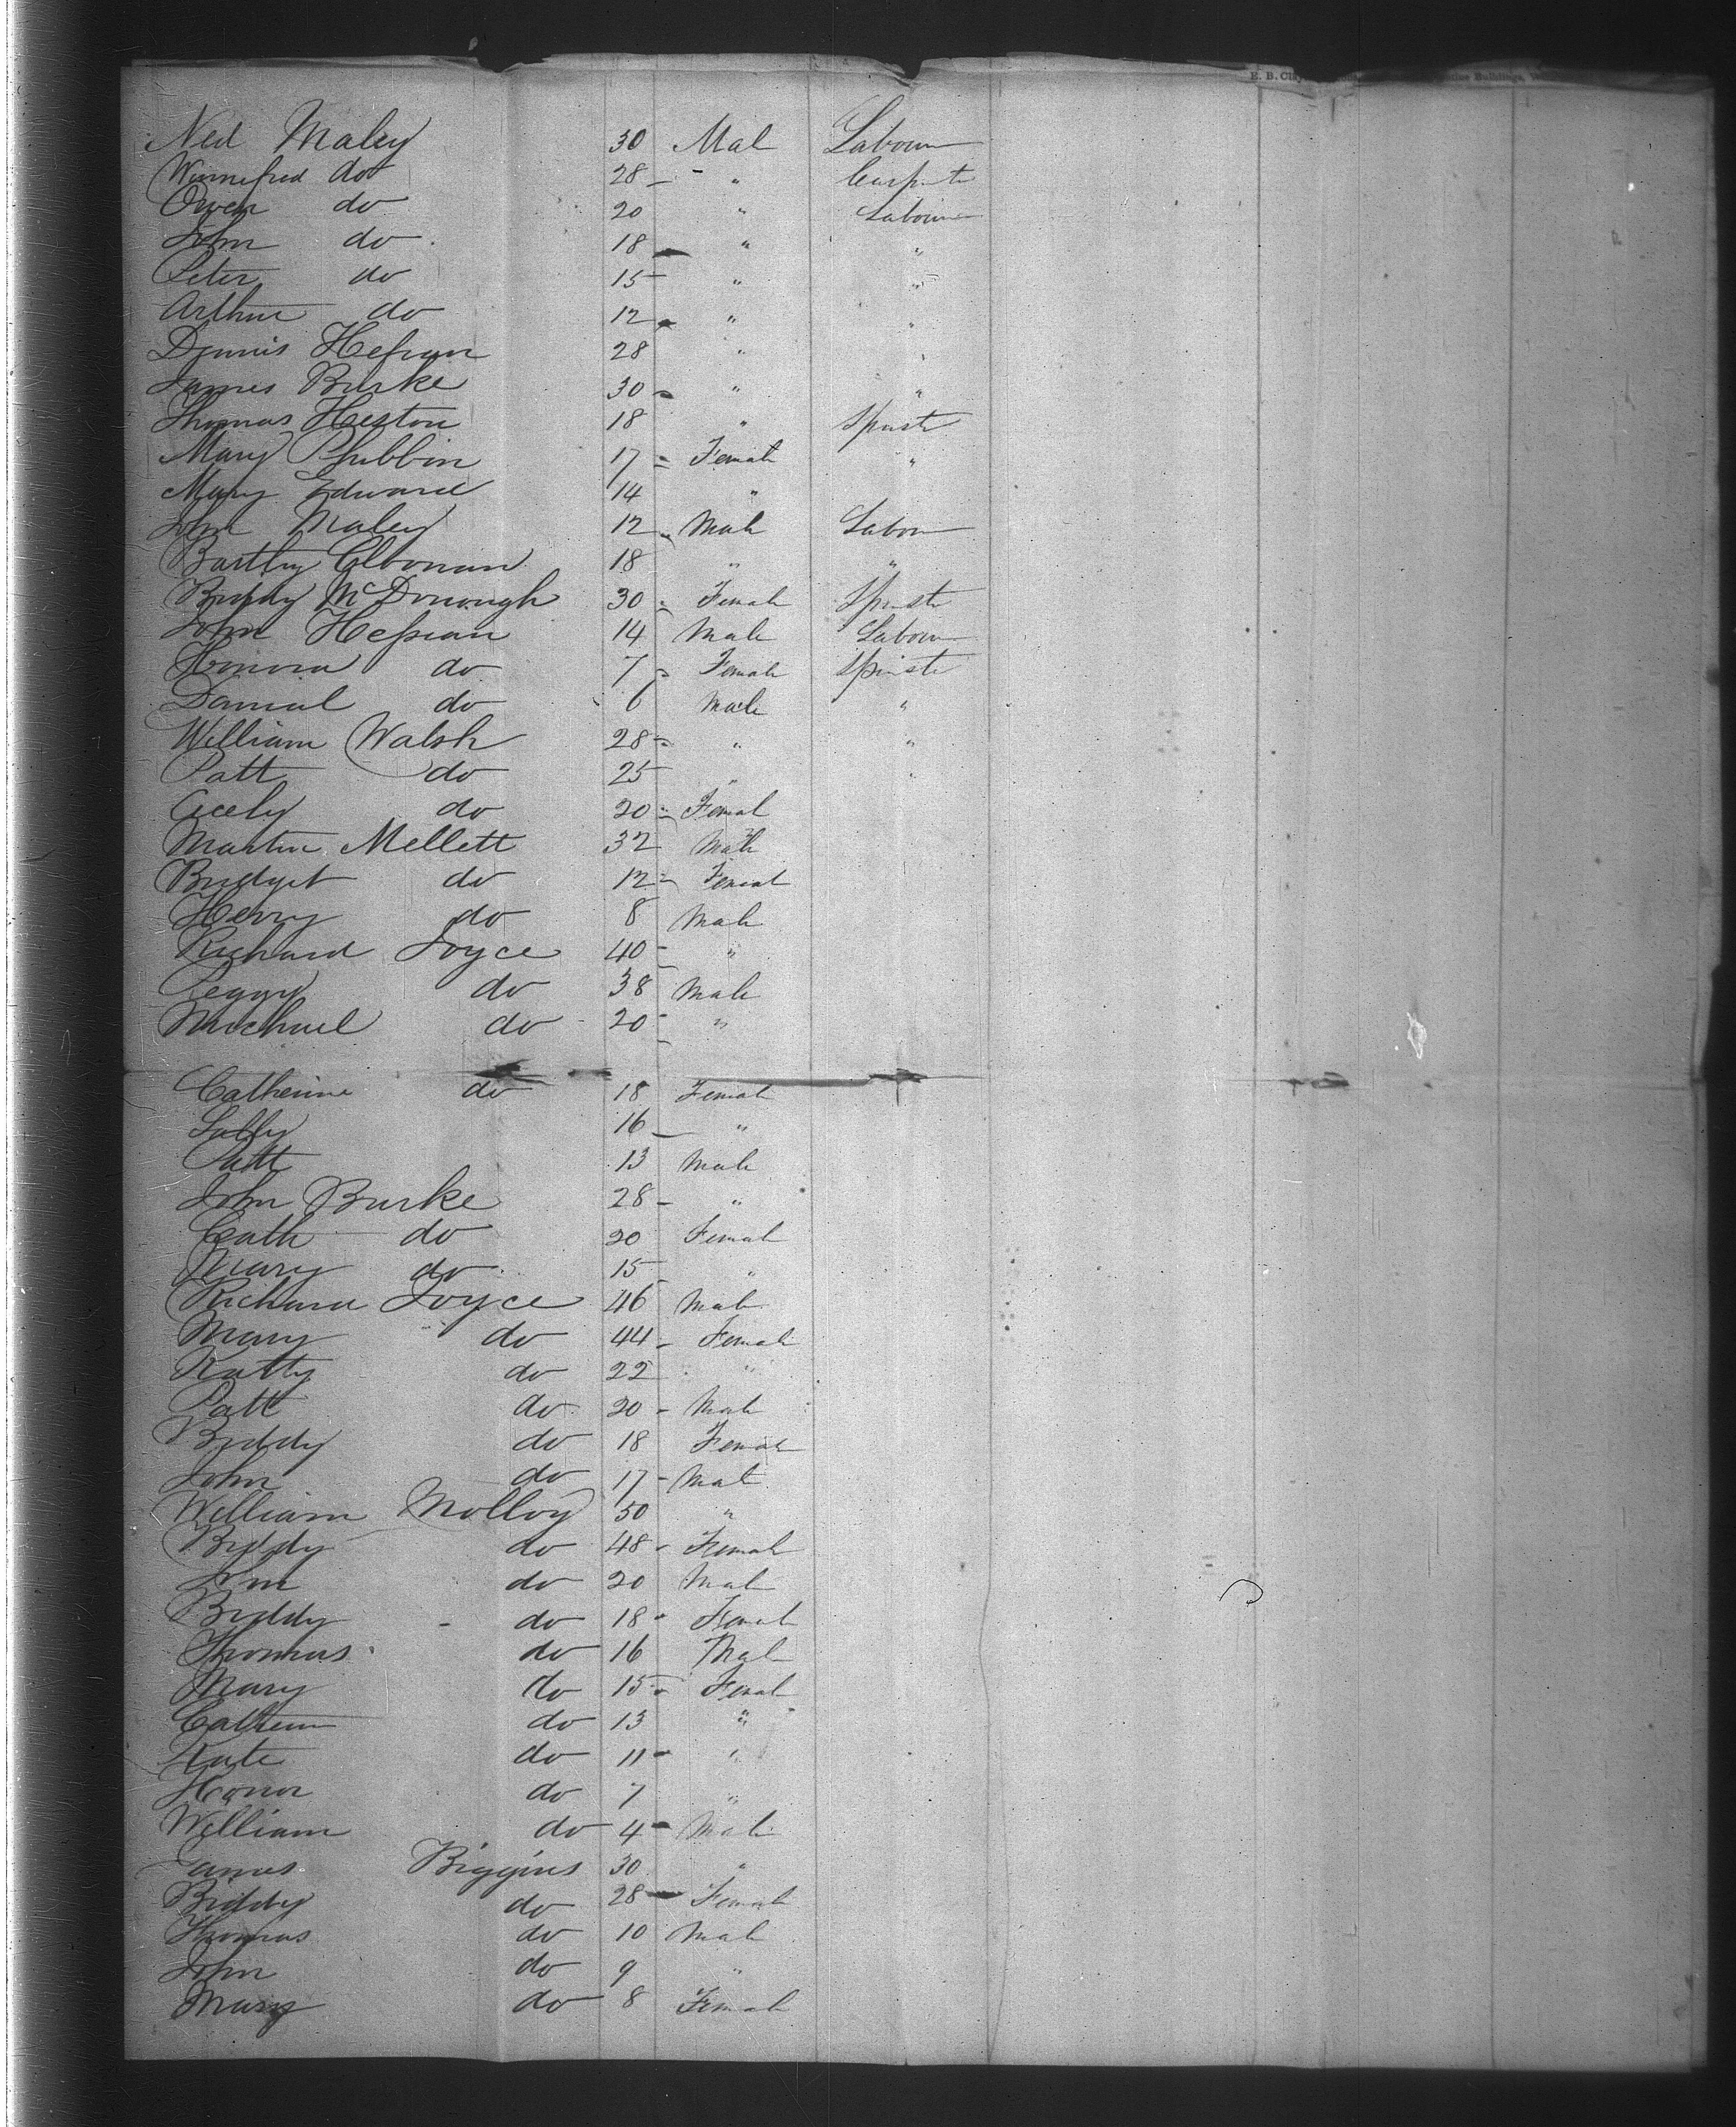 E. B. Clay
Buildings,
Ned Maley 30 Mal Labour
Winnefred do 28 " Carpnte
Owen do 20 " Labour
John do 18 " "
Peter do 15 " "
Arthur do 12 " "
Dennis Hefron 28 " "
James Burke 30 " "
Thomas Heston 18 " Spinst
Mary Phibbin 17 Female "
Mary Edward 14 "
John Maley 12 Male Labour
Bartley 18 " "
Biddy McDonough 30 Female Spinste
John Hefran 14 Male Labour
Honora do 7 Female Spinste
Danial do 6 Male "
William Walsh 28 " "
Patt do 25 " "
Cicely do 20 Femal
Martin Mellett 32 Male
Bridget do 12 Femal
Henry do 8 Male
Richard Joyce 40 "
Peggy do 38 Male
Michael do 20 "
Catherine do 18 Femal
Sally 16 "
Patt 13 Male
John Burke 28 "
Cath do 20 Femal
Mary do 15 "
Richard Joyce 46 Male
Mary do 44 Female
Katty do 22 "
Patt do 20 Male
Biddy do 18 Female
John do 17 Mal
William Molloy 50 "
Biddy do 48 Female
John do 20 Mal
Biddy do 18 Female
Thomas do 16 Mal
Mary do 15 Femal
Cathern do 13 "
Kate do 11 "
Honor do 7 "
William do 4 Male
James Biggins 30 "
Biddy do 28 Female
Thomas do 10 Male
John do 9 "
Mary do 8 Female